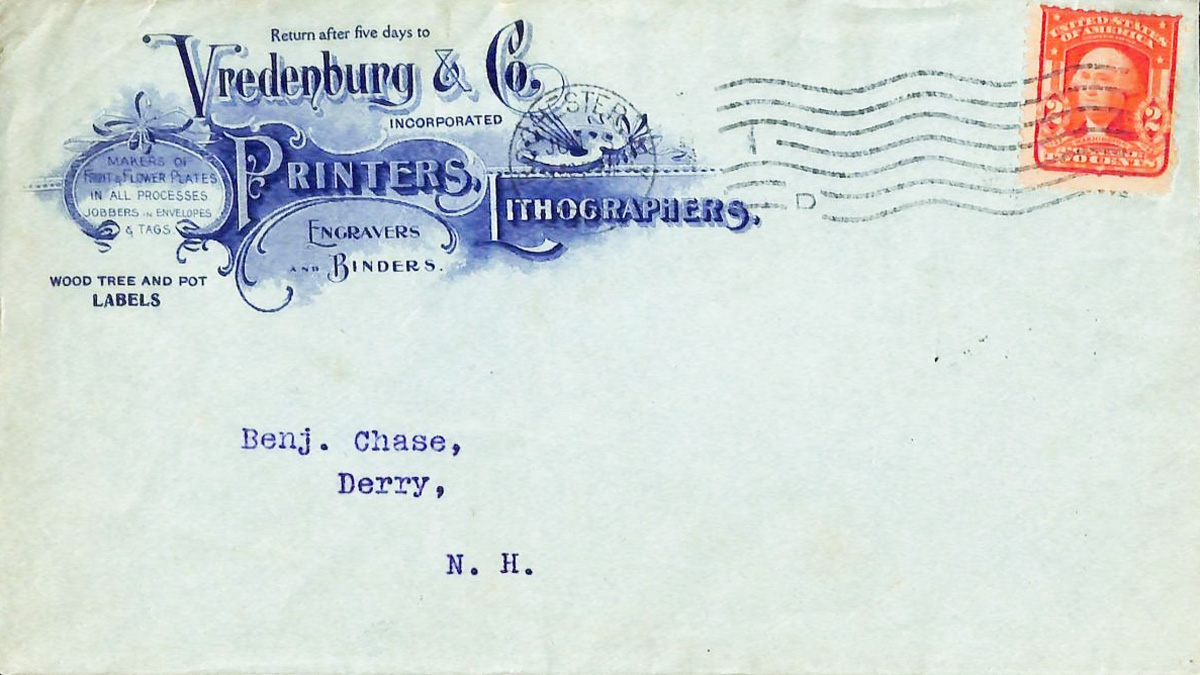 Return after five days to
Vredenburg & Co.
INCORPORATED
PRINTERS,
LITHOGRAPHERS.
ENGRAVERS
AND BINDERS.
MAKERS OF
FRUIT & FLOWER PLATES
IN ALL PROCESSES
JOBBERS IN ENVELOPES
& TAGS
WOOD TREE AND POT
LABELS
UNITED STATES
OF AMERICA
2 2
TWO CENTS
D
Benj. Chase,
Derry,
N. H.